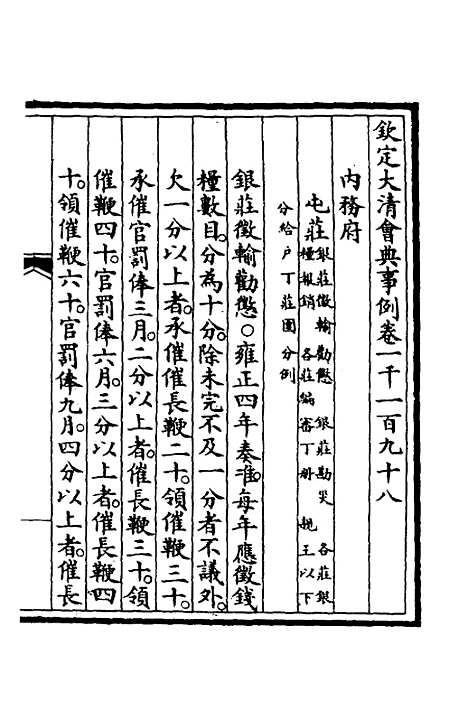 欽定大清會典事例卷一千一百九十八
內務府
屯莊銀莊徵輸勸懲 銀莊勘災 各莊銀
糧報銷 各莊編審丁册 親王以下
分給戶丁莊園分例
銀莊徵輸勸懲○雍正四年奏准。每年應徵錢
糧數目。分為十分。除未完不及一分者不議外。
欠一分以上者。承催催長鞭二十。領催鞭三十。
承催官罰俸三月。二分以上者。催長鞭三十。領
催鞭四十。官罰俸六月。三分以上者。催長鞭四
十。領催鞭六十。官罰俸九月。四分以上者。催長